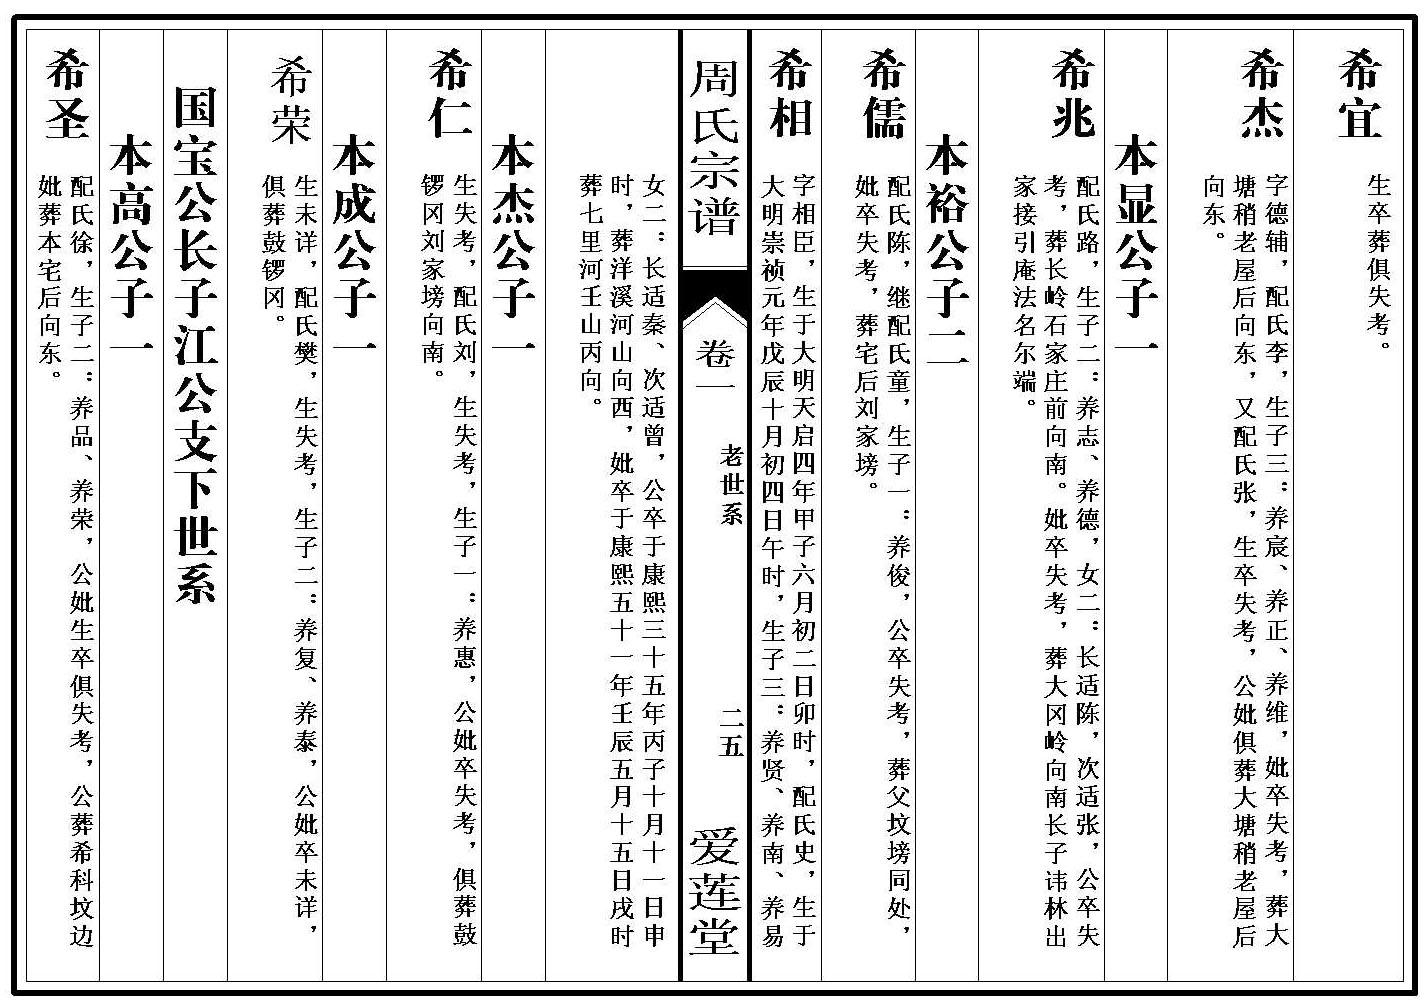 希宜
生卒葬俱失考。
希杰
字德辅，配氏李，生子三：养宸、养正、养维，妣卒失考，葬大
塘稍老屋后向东，又配氏张，生卒失考，公妣俱葬大塘稍老屋后
向东。
本显公子一
希兆
配氏路，生子二：养志、养德，女二：长适陈，次适张，公卒失
考，葬长岭石家庄前向南。妣卒失考，葬大冈岭向南长子讳林出
家接引庵法名尔端。
本裕公子二
希儒
配氏陈，继配氏童，生子一：养俊，公卒失考，葬父坟塝同处，
妣卒失考，葬宅后刘家塝。
希相
字相臣，生于大明天启四年甲子六月初二日卯时，配氏史，生于
大明崇祯元年戊辰十月初四日午时，生子三：养贤、养南、养易
周氏宗谱
卷一
老世系
二五
爱莲堂
女二：长适秦、次适曾，公卒于康熙三十五年丙子十月十一日申
时，葬洋溪河山向西，妣卒于康熙五十一年壬辰五月十五日戌时
葬七里河壬山丙向。
本杰公子一
希仁
生失考，配氏刘，生失考，生子一：养惠，公妣卒失考，俱葬鼓
锣冈刘家塝向南。
本成公子一
希荣
生未详，配氏樊，生失考，生子二：养复、养泰，公妣卒未详，
俱葬鼓锣冈。
国宝公长子江公支下世系
本高公子一
希圣
配氏徐，生子二：养品、养荣，公妣生卒俱失考，公葬希科坟边
妣葬本宅后向东。